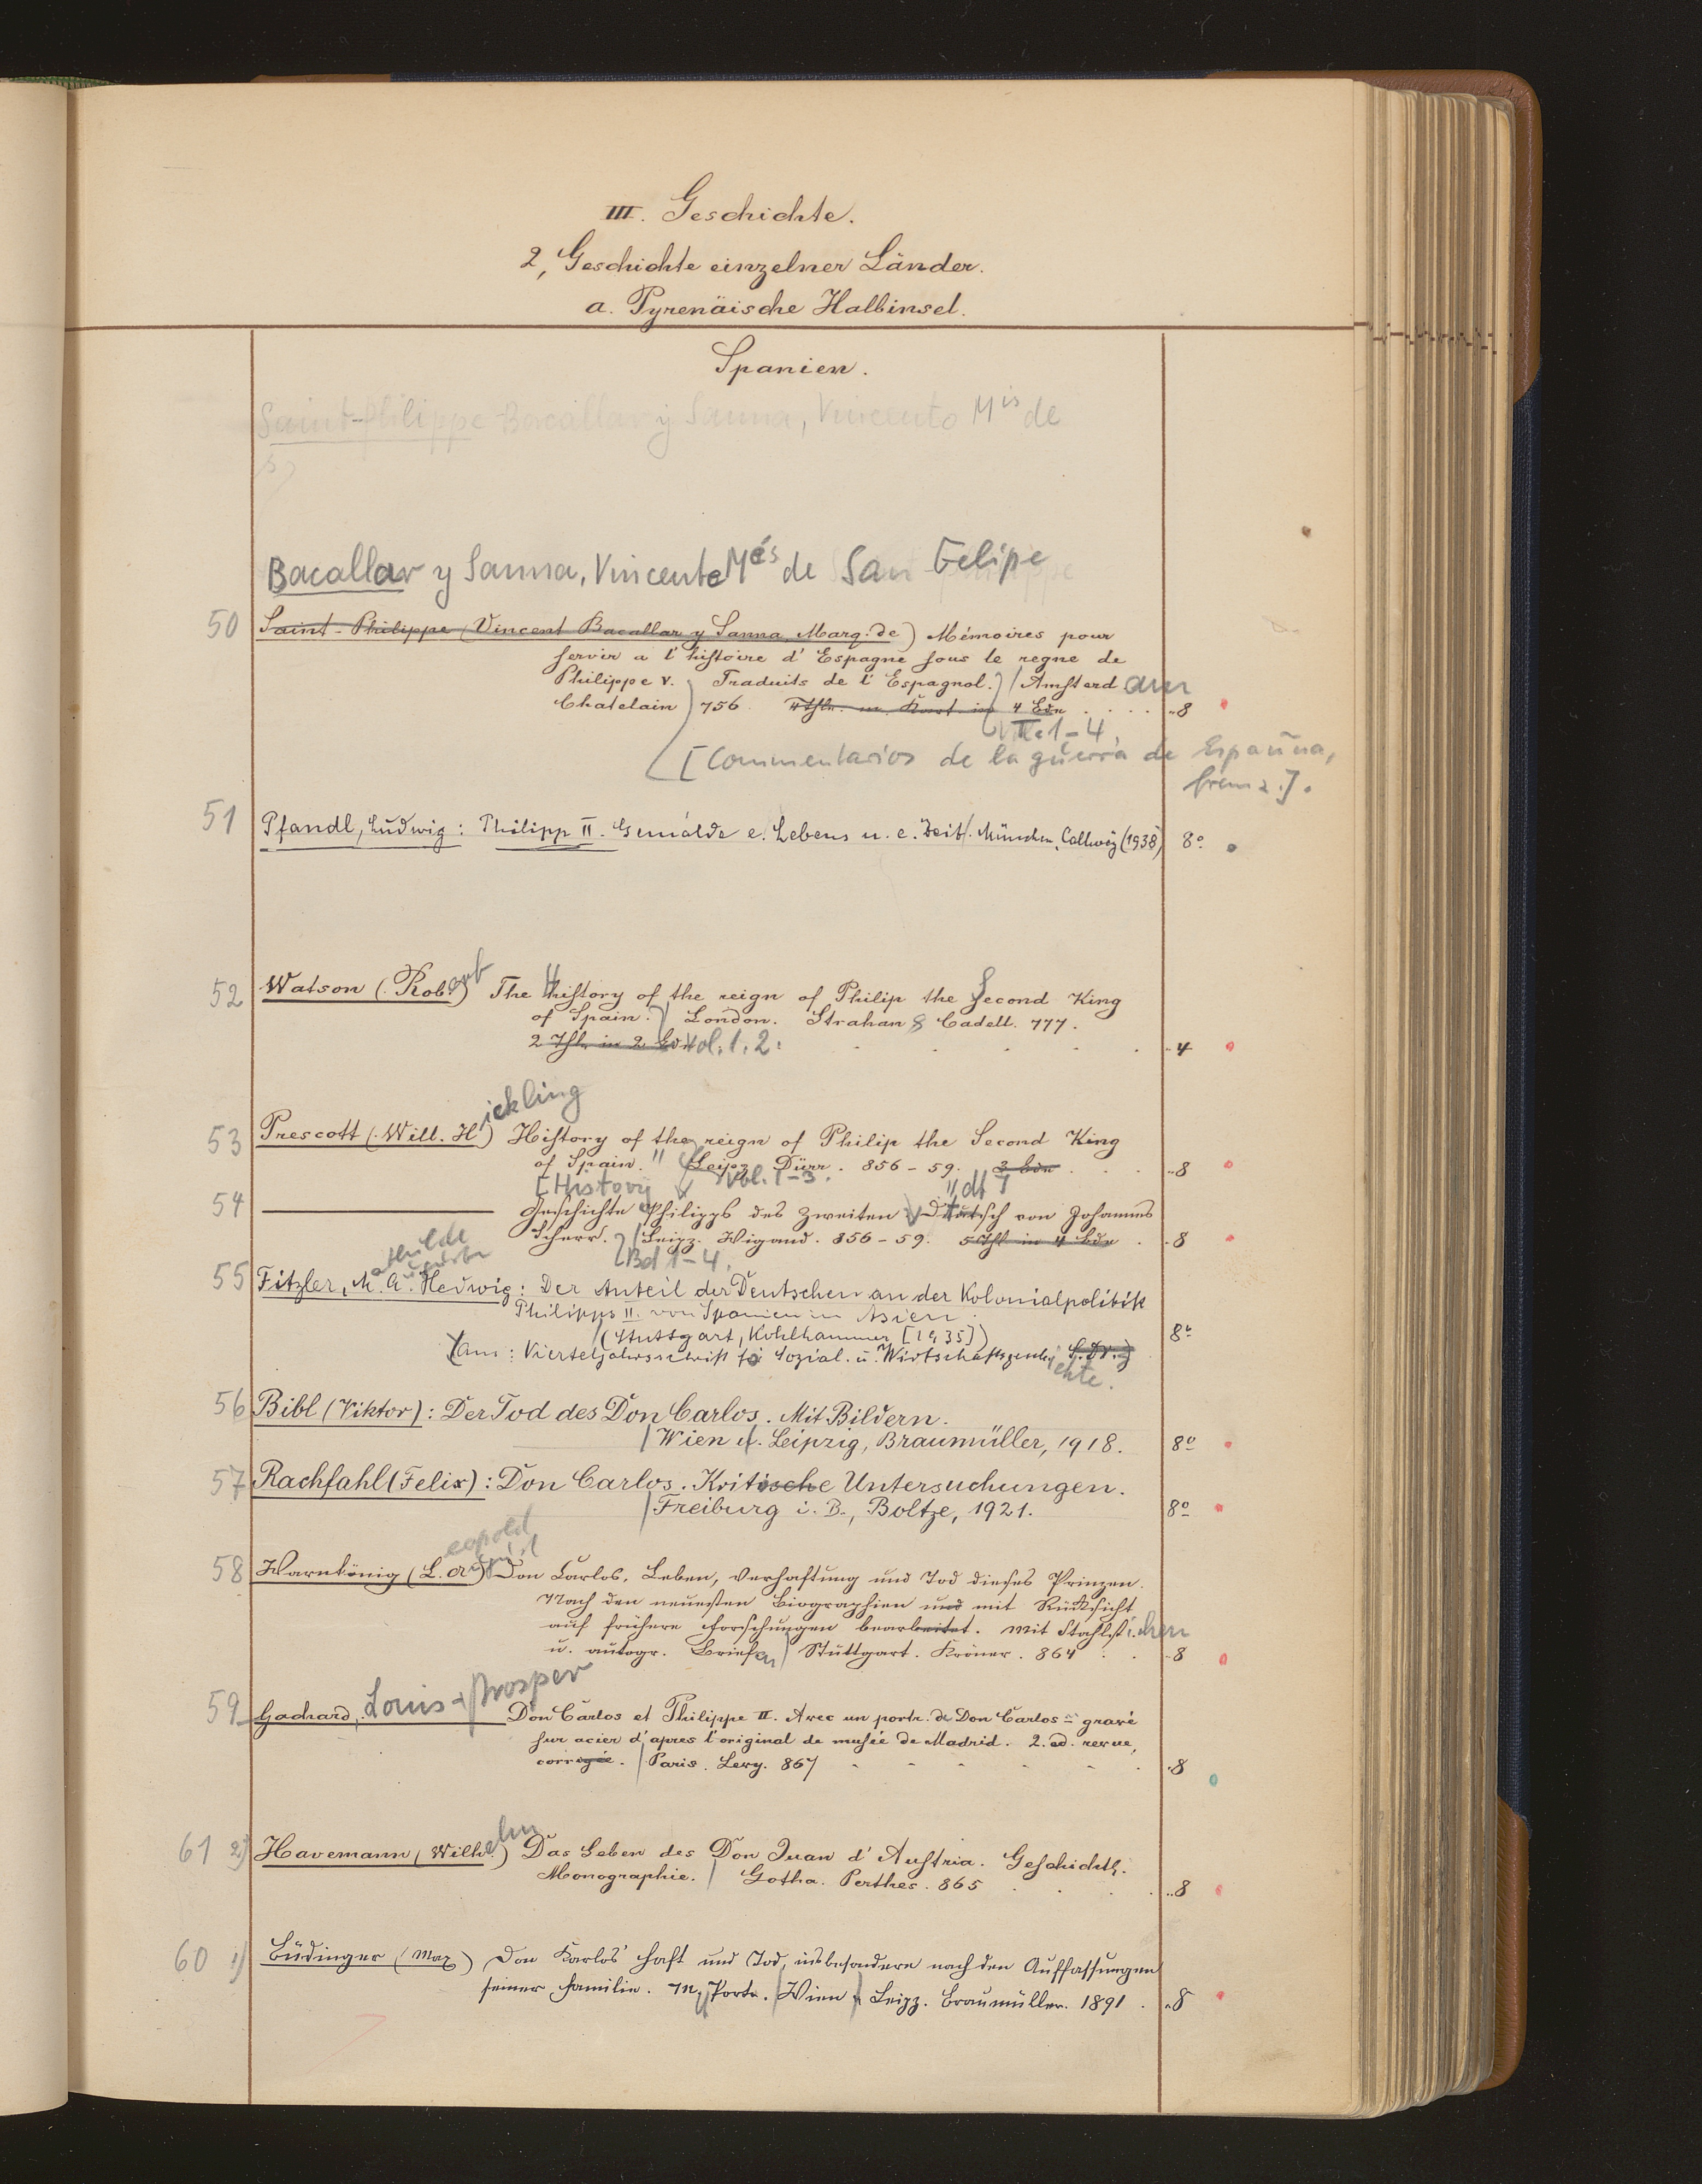 III. Geschichte.
2, Geschichte einzelner Länder.
a. Pyrenäische Halbinsel.
Spanien.
Saint-Philippe Bacallar y Sanna, Vincento Mis de
Bacallar y Sanna, Vincente Més de San Felipe
50 Saint-Philippe (Vincent Bacallar y Sanna Marq. de) Mémoires pour
servir a l'histoire d'Espagne sous le regne de
Philippe V. Traduits de l'Espagnol. Amsterdam
Chatelain 756. 4 Thle. 4 Bde . . . . 8
T. 1-4.
[Commentarios de la guerra de España,
franz.].
51 Pfandl, Ludwig: Philipp II. Gemälde e. Lebens u. e. Zeit. München, Callwey (1938) 8°
52 Watson (Robert) The History of the reign of Philip the Second King
of Spain. London. Strahan & Cadell. 777.
2 Thle in 2 Bdn Vol. 1. 2. . . . . . 4
53 Prescott (Will. Hickling) History of the reign of Philip the Second King
of Spain. Leipz. Dürr. 856-59. 3 Bde . . . 8
Vol. 1-3.
[History dt]
54 Geschichte Philipps des Zweiten Deutsch von Johannes
Scherr. Leipz. Wigand. 856-59. 5 Thle in 4 Bde . 8
Bd 1-4.
55 Fitzler, Mathilde A. Hedwig: Der Anteil der Deutschen an der Kolonialpolitik
Philipps II. von Spanien in Asien.
(Stuttgart, Kohlhammer [1935]) 8°
Aus: Vierteljahrsschrift fü Sozial. u. Wirtschaftsgeschichte.
56 Bibl (Viktor): Der Tod des Don Carlos. Mit Bildern.
Wien u. Leipzig, Braumüller, 1918. 8°
57 Rachfahl (Felix): Don Carlos. Kritische Untersuchungen.
Freiburg i. B., Boltze, 1921. 8°
58 Warnkönig (Leopold A.) Don Carlos. Leben, Verhaftung und Tod dieses Prinzen.
Nach den neuesten Biographien und mit Rücksicht
auf frühere Forschungen bearbeitet. Mit Stahlstichen
u. autogr. Briefen Stuttgart. Kröner. 864 . . 8
59 Gachard, Louis-Prosper Don Carlos et Philippe II. Avec un portr. de Don Carlos gravé
sur acier d'apres l'original de musée de Madrid. 2. ed. revue,
corrigée. Paris. Levy. 867 . . . . . . 8
61 2) Havemann (Wilhelm) Das Leben des Don Juan d'Austria. Geschichtl.
Monographie. Gotha. Perthes. 865 . . . . 8
60 1) Büdinger (Max) Don Karlos' Haft und Tod, insbesondere nach den Auffassungen
seiner Familie. M. Portr. Wien Leipz. Braumüller. 1891 . 8